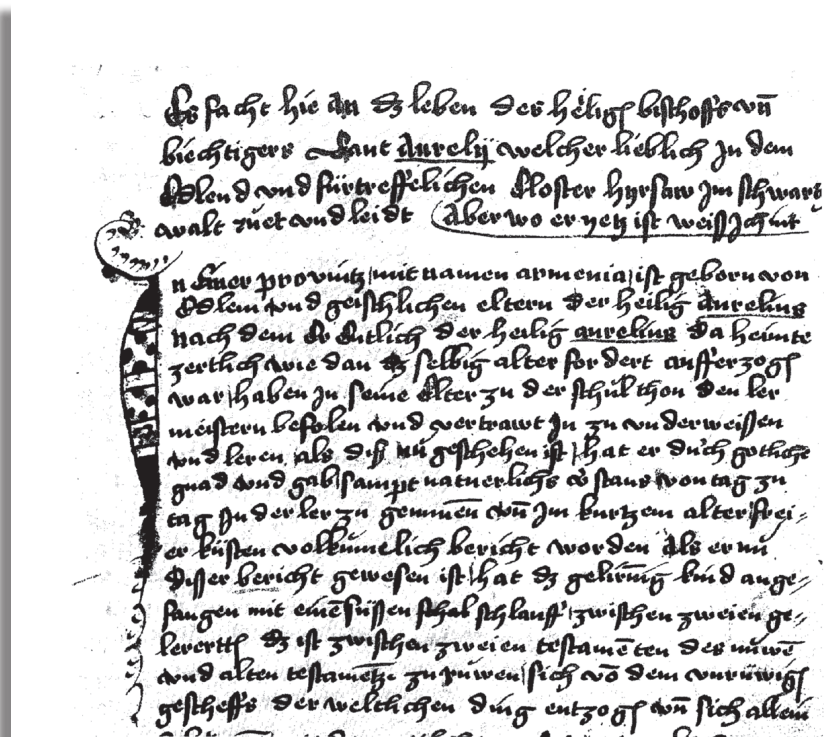 Es facht hie an dz leben des heligen bischoffs vn̄
biechtigers Sant Aurelij welcher lieblich Jn dem
Edlen vnd fürtreffelichen Closter hyrsaw Jm schwartz
walt ruet vnd leidt Aber wo er yetz ist weiss Jch nit
n Einer provintz mit namen armenia ist geborn von
Edlem vnd geischlichen eltern der heilig Aurelius
Nach dem Er Entlich der heilig aurelius da heimte
zertlich wie dan dz selbig alter fordert aufferzogen
war haben Jn seine Elter zu der schůl thon den ler
meistern befolen vnd vertrawt Jn zu vnderweissen
vnd leren als diss nů geschehen ist hat er durch gotliche
gnad vnd gab sampt natuerlichs v̄stans von tag zu
tag Jn der ler zu genumēn vn̄ Jm kurtzem alter frei-
er küsten volkumelich bericht worden Als er nu
disser bericht gewesen ist hat dz gelirnig kind ange-
fangen mit einē süssen schalschlauff zwischen zweien ge-
lerertten dz ist zwischen zweien testamēten des nuwē
vnd alten testamētz zu ruwen sich vō dem vnruwigen
gescheffs der weltlichen ding entzogen vn̄ sich allein